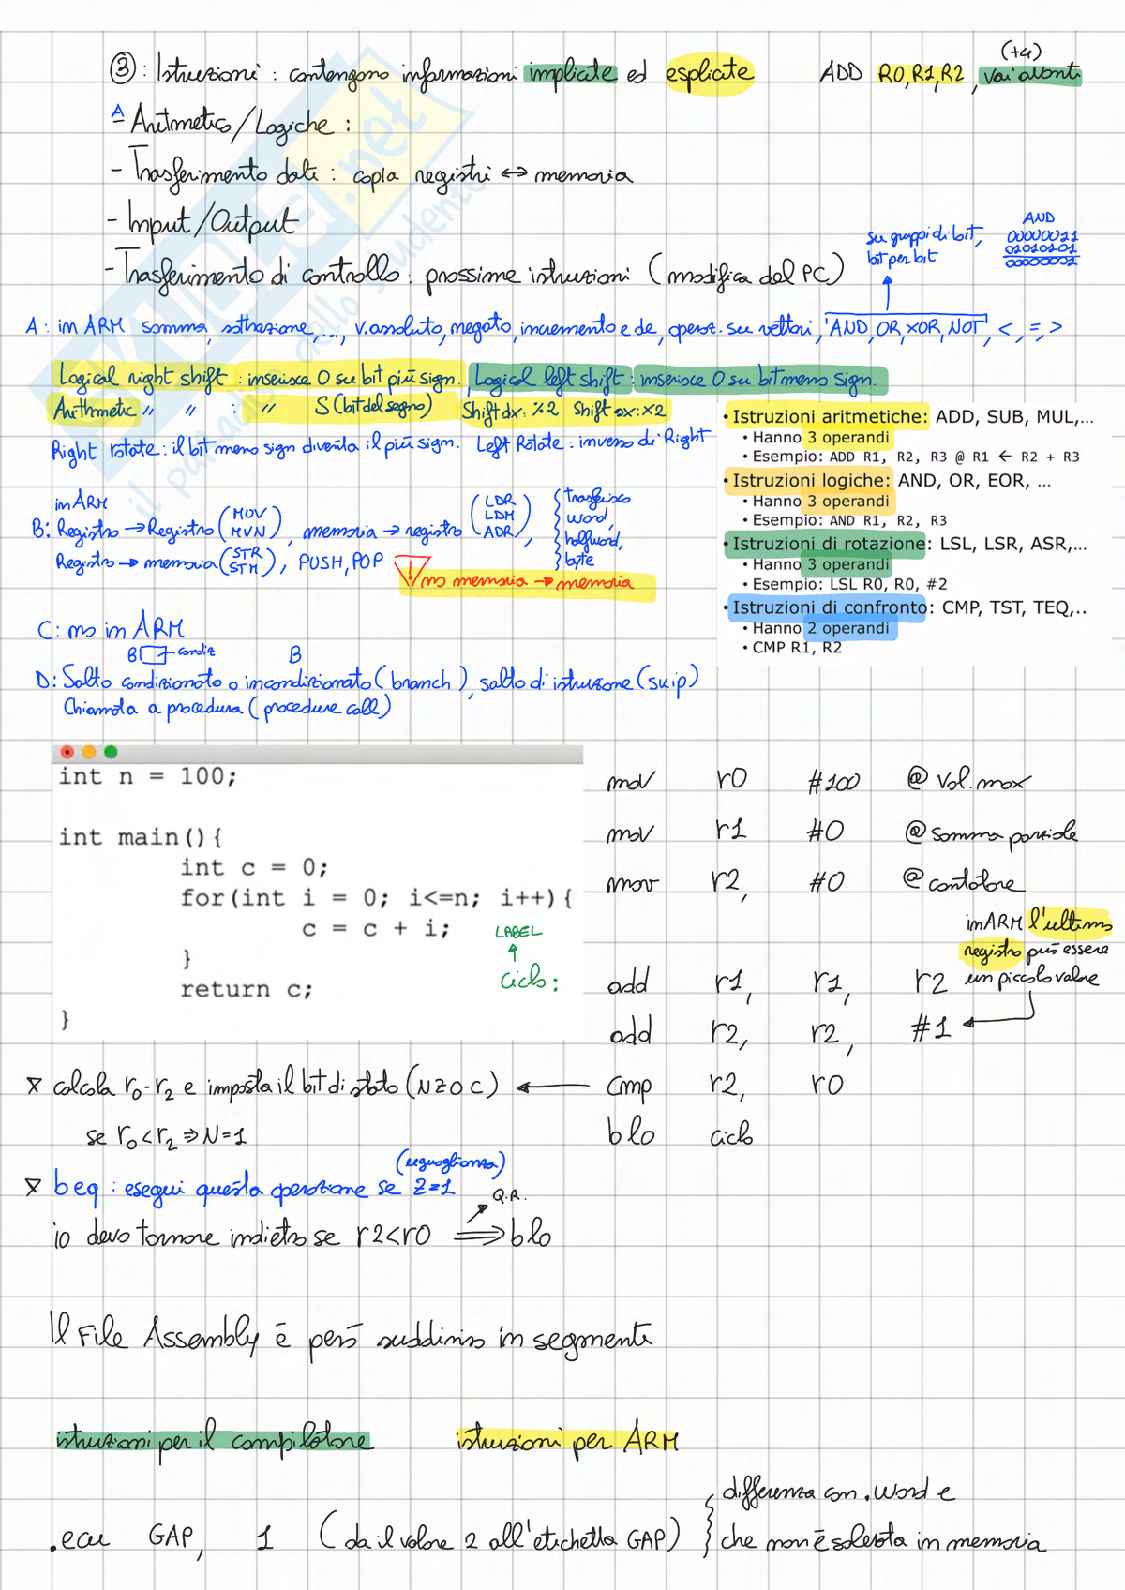 (+4)
③: Istruzioni : contengono informazioni implicite ed esplicite ADD R0,R1,R2 , vai avanti
A
- Aritmetico/Logiche :
- Trasferimento dati : copia registri ↔ memoria
- Input/Output
- Trasferimento di controllo : prossime istruzioni (modifica del PC)
su gruppi di bit,
bit per bit
AND
00000021
01010101
00000001
A: in ARM somma, sottrazione, ..., v.assoluto, negato, incremento e de, operat. su vettori, 'AND, OR, XOR, NOT', <, =, >
Logical right shift : inserisce 0 su bit più sign. Logical left shift : inserisce 0 su bit meno sign.
Arithmetic " " : " S (bit del segno) Shift dx: ٪2 Shift sx: x2
Right rotate : il bit meno sign diventa il più sign. Left Rotate : inverso di Right
• Istruzioni aritmetiche: ADD, SUB, MUL,...
• Hanno 3 operandi
• Esempio: ADD R1, R2, R3 @ R1 ← R2 + R3
• Istruzioni logiche: AND, OR, EOR, ...
• Hanno 3 operandi
• Esempio: AND R1, R2, R3
• Istruzioni di rotazione: LSL, LSR, ASR,...
• Hanno 3 operandi
• Esempio: LSL R0, R0, #2
• Istruzioni di confronto: CMP, TST, TEQ,..
• Hanno 2 operandi
• CMP R1, R2
in ARM
B: Registro → Registro (MOV MVN), memoria → registro (LDR LDM ADR), { trasferisco word, halfword, byte
Registro → memoria (STR STM), PUSH, POP
! no memoria → memoria
C: no in ARM
B condiz B
D: Salto condizionato o incondizionato (branch), salto di istruzione (skip)
Chiamata a procedura (procedure call)
int n = 100;
int main(){
int c = 0;
for(int i = 0; i<=n; i++){
c = c + i;
}
return c;
}
mov r0 #100 @ val. max
mov r1 #0 @ somma parziale
mov r2, #0 @ contatore
in ARM l'ultimo
registro può essere
un piccolo valore
LABEL
ciclo: add r1, r1, r2
add r2, r2, #1
cmp r2, r0
blo ciclo
calcola r0-r2 e imposta il bit di stato (N Z O C)
se r0 < r2 ⇒ N=1
(uguaglianza)
beq : esegui questa operazione se Z=1
Q.R.
io devo tornare indietro se r2<r0 ⟹ blo
Il File Assembly è però suddiviso in segmenti
istruzioni per il compilatore istruzioni per ARM
.equ GAP, 1 (da il valore 2 all'etichetta GAP) } differenza con .word e
che non è salvata in memoria